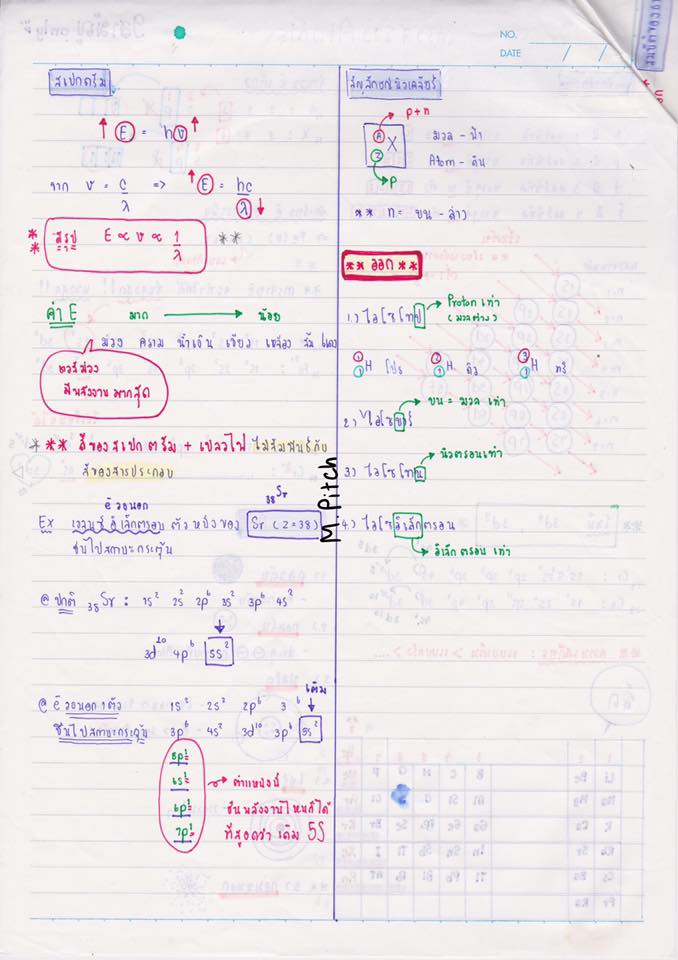 NO.
DATE / /
สเปกตรัม
↑ E = hν ↑
จาก ν = c/λ => ↑ E = hc/λ ↓
** สรุป E ∝ ν ∝ 1/λ **
ค่า E มาก → น้อย
ม่วง คราม น้ำเงิน เขียว เหลือง ส้ม แดง
แสงสีม่วง
มีพลังงานมากสุด
*** สีของสเปกตรัม + เปลวไฟ ไม่สัมพันธ์กับ
สีของสารประกอบ
ē วงนอก
₃₈Sr
Ex เวเลนซ์อิเล็กตรอน ตัวหนึ่งของ Sr (Z=38)
ขึ้นไปสถานะกระตุ้น
@ ปกติ ₃₈Sr : 1s² 2s² 2p⁶ 3s² 3p⁶ 4s²
3d¹⁰ 4p⁶ 5s²
เดิม
@ ē วงนอก 1 ตัว 1s² 2s² 2p⁶ 3 ⁶
ขึ้นไปสถานะกระตุ้น 3p⁶ 4s² 3d¹⁰ 3p⁶ 5s²
5p¹
6s¹
6p¹
7p¹
ตำแหน่งนี้
ขึ้นพลังงานไหนก็ได้
ที่สูงกว่า เดิม 5S
สัญลักษณ์นิวเคลียร์
p+n
A
Z
X
p
มวล - ฟ้า
Atom - ดิน
** n = บน - ล่าง
** ออก **
1.) ไอโซโทป
Proton เท่า
(มวลต่าง)
¹₁H โปร ²₁H ดิว ³₁H ทริ
2.) ไอโซบาร์
บน = มวล เท่า
3.) ไอโซโทน
นิวตรอนเท่า
4.) ไอโซอิเล็กตรอน
อิเล็กตรอน เท่า
M.Pitch